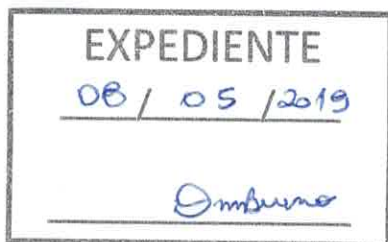 EXPEDIENTE
08 / 05 / 2019